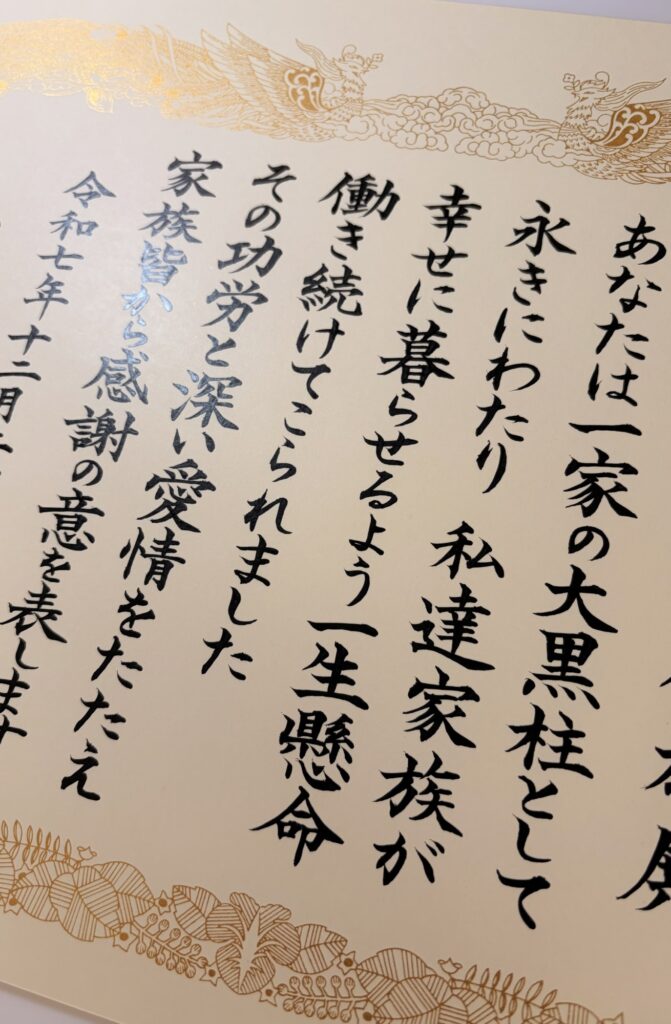 あなたは一家の大黒柱として
永きにわたり 私達家族が
幸せに暮らせるよう一生懸命
働き続けてこられました
その功労と深い愛情をたたえ
家族皆から感謝の意を表します
令和七年十二月